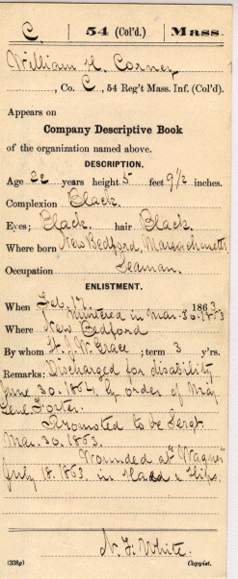 C. | 54 (Col'd.) | Mass.
William H. Carney
, Co. C, 54 Reg't Mass. Inf. (Col'd).
Appears on
Company Descriptive Book
of the organization named above.
DESCRIPTION.
Age 22 years height 5 feet 9 1/2 inches.
Complexion Black.
Eyes; Black. hair Black.
Where born New Bedford, Massachusetts
Occupation Seaman.
ENLISTMENT.
When Feb. 17. 1863.
Mustered in Mar. 30. 1863
Where New Bedford
By whom J. W. Grace; term 3 y'rs.
Remarks: Discharged for disability
June 30. 1864. by order of Maj.
Genl. Foster.
Promoted to be Sergt.
Mar. 30. 1863.
Wounded at Wagner
July 18. 1863. in Head & Hips.
N. G. White.
(338g) Copyist.